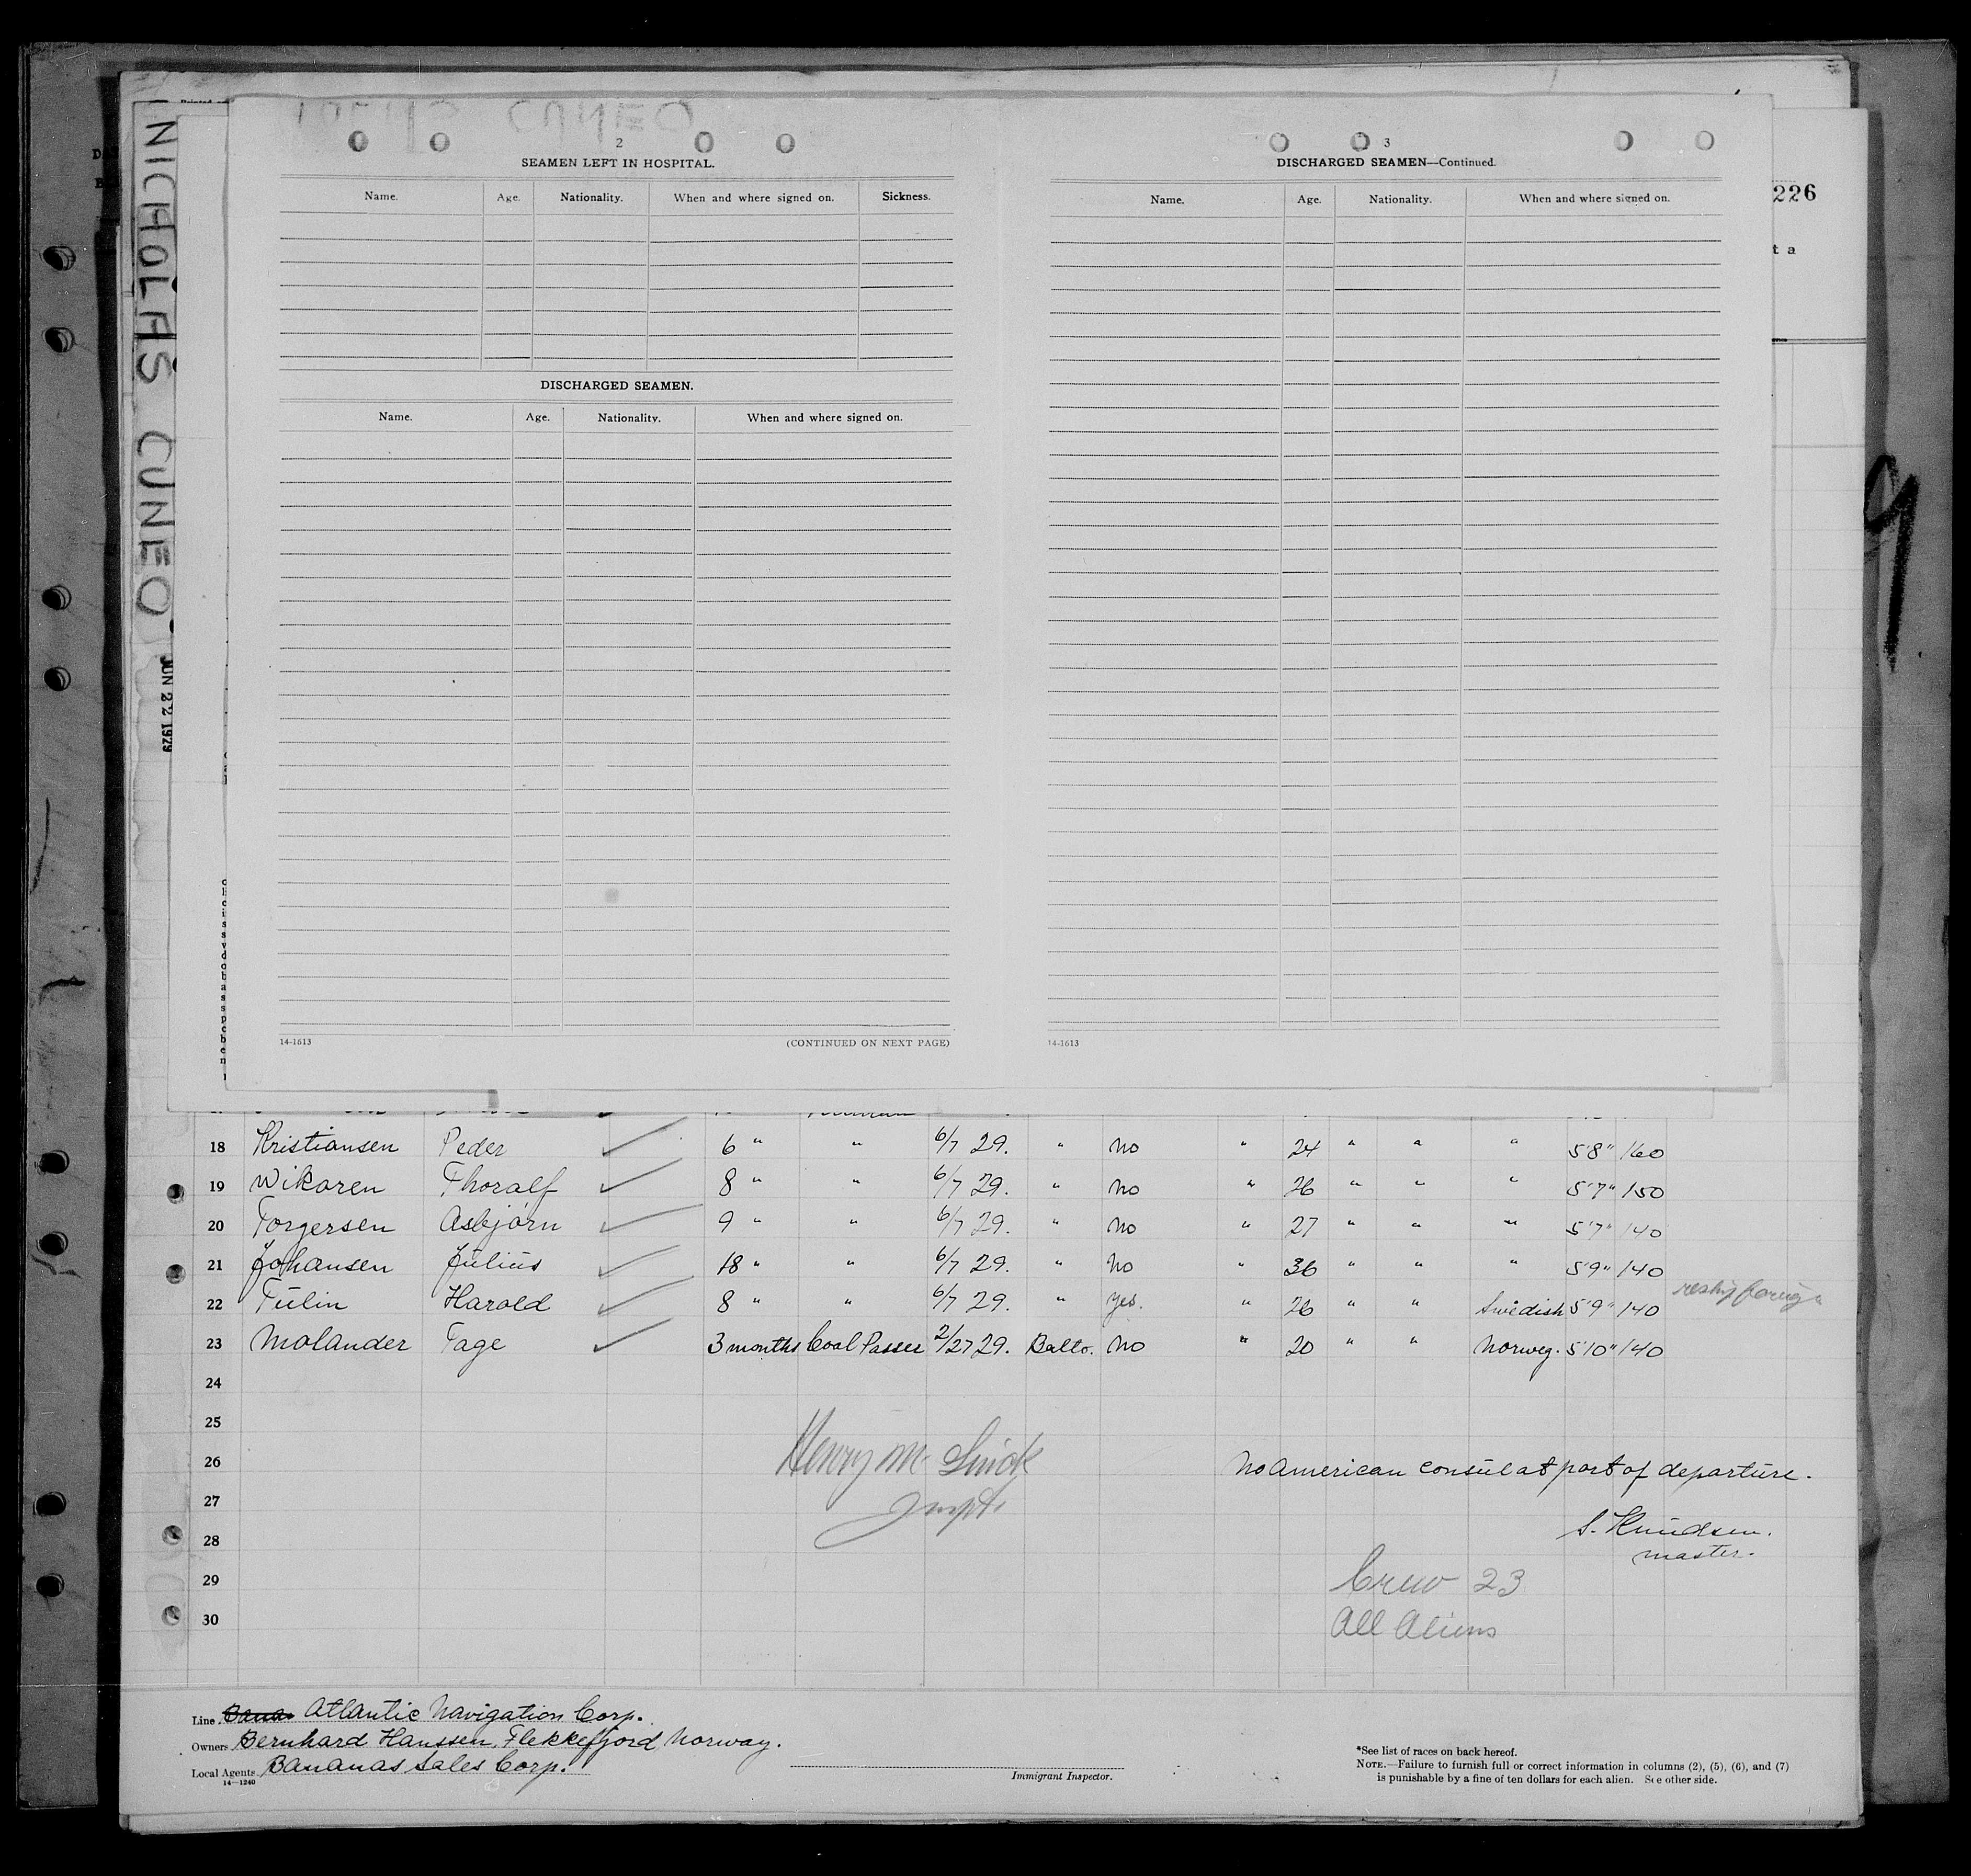 NICHOLAS CUNEO
JUN 22 1929
226
t a
9
2
SEAMEN LEFT IN HOSPITAL.
Name. Age. Nationality. When and where signed on. Sickness.
DISCHARGED SEAMEN.
Name. Age. Nationality. When and where signed on.
14-1613 (CONTINUED ON NEXT PAGE)
3
DISCHARGED SEAMEN—Continued.
Name. Age. Nationality. When and where signed on.
14-1613
18 Kristiansen Peder ✓ 6 " " 6/7 29. " No " 24 " " " 5'8" 160
19 Wikaren Thoralf ✓ 8 " " 6/7 29. " No " 26 " " " 5'7" 150
20 Torgersen Asbjörn ✓ 9 " " 6/7 29. " No " 27 " " " 5'7" 140
21 Johansen Julius ✓ 18 " " 6/7 29. " No " 36 " " " 5'9" 140
22 Tulin Harold ✓ 8 " " 6/7 29. " Yes. " 26 " " Swedish 5'9" 140 reship foreign
23 Molander Tage ✓ 3 months Coal Passer 2/27 29. Balto. No " 20 " " Norweg. 5'10" 140
24
25
26
27
28
29
30
Henry M.
Inspt.
No American consul at port of departure.
S. Knudsen.
master.
Crew 23
All Aliens
Line Atlantic Navigation Corp.
Owners Bernhard Hanssen, Flekkefjord Norway.
Local Agents Bananas Sales Corp.
14-1240
Immigrant Inspector.
*See list of races on back hereof.
NOTE.—Failure to furnish full or correct information in columns (2), (5), (6), and (7)
is punishable by a fine of ten dollars for each alien. See other side.